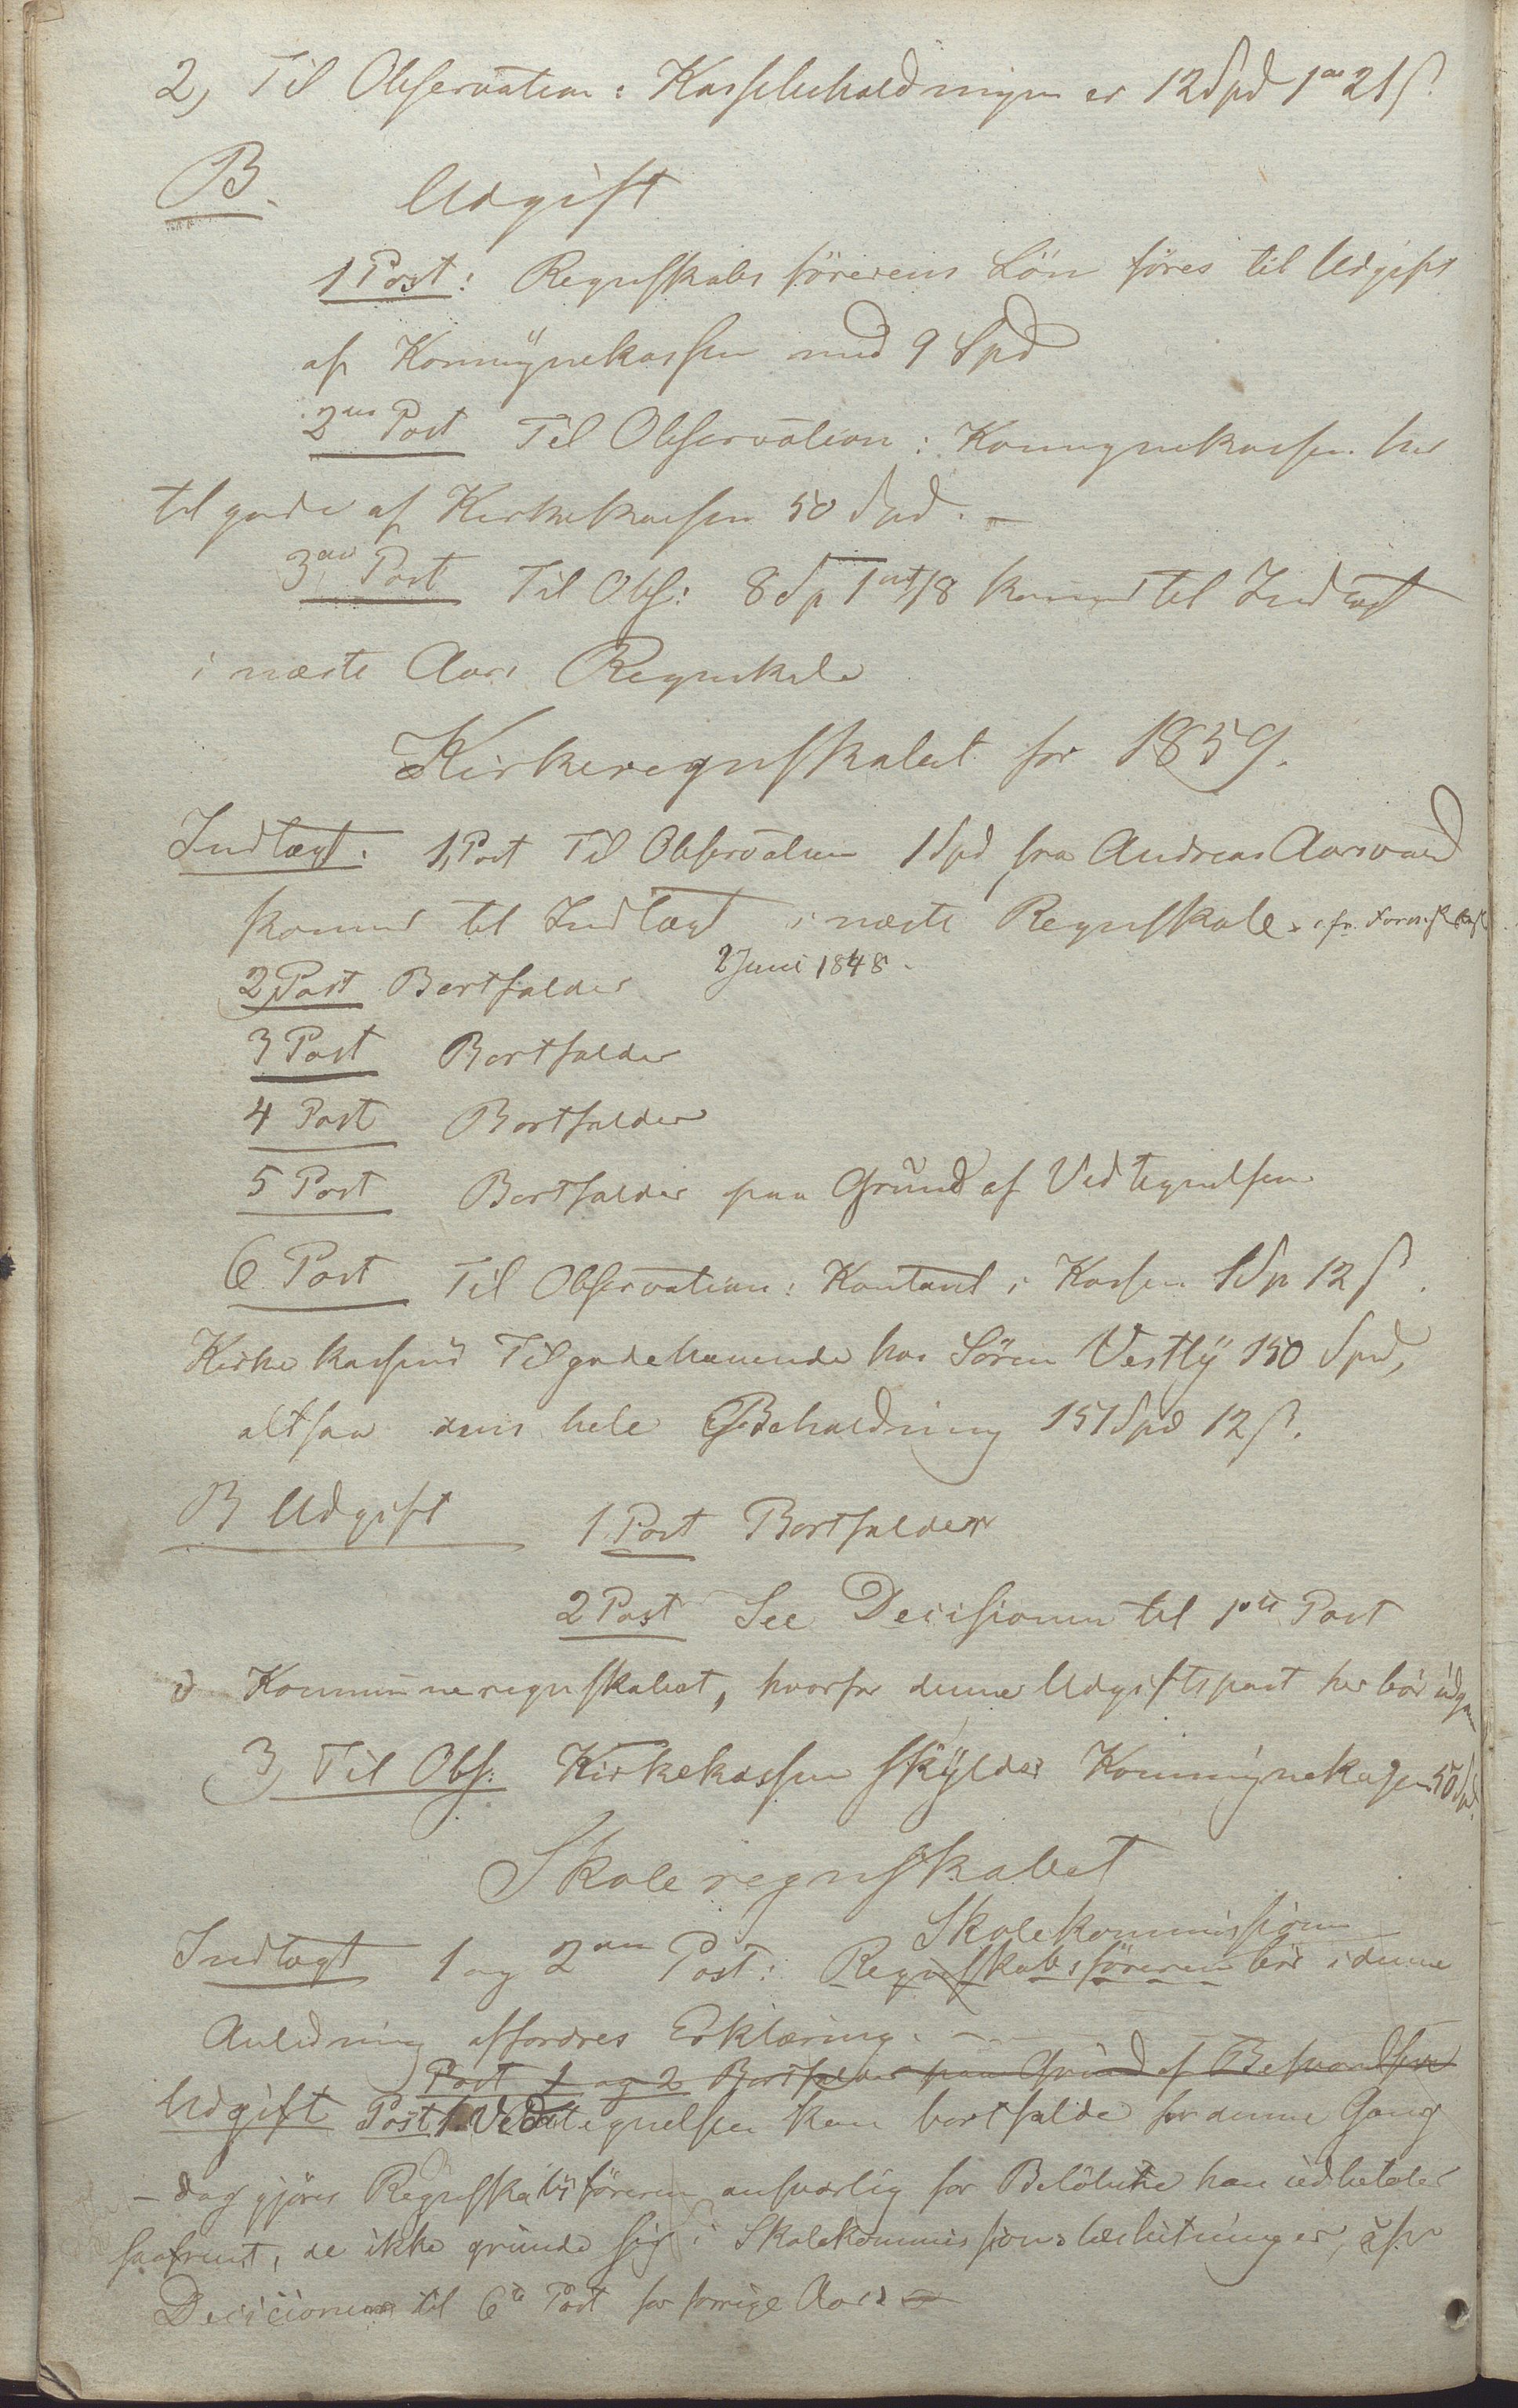 2, Til Observation: Kassebeholdningen er 12 Spd 1 ort 21 ß.
B. Udgift
1 Post: Regnskabsførerens Lön föres til Udgift
af Kommunekassen med 9 Spd
2den Post Til Observation: Kommunekassen har
tilgode af Kirkekassen 50 Spd. –
3die Post Til Obs: 8 Sp 1 ort 18 kommer til Indtægt
i næste Aars Regnskab
Kirkeregnskabet for 1859.
Indtægt: 1, Post Til Observation 1 Spd fra Andreas Aarsvaad
kommer til Indtægt i næste Regnskab. cfr. Formskbsk
2 Juni 1848.
2, Post Bortfalder
3 Post Bortfalder
4 Post Bortfalder
5 Post Bortfalder paa Grund af Vedtegnelsen
6 Post Til Observation: Kontant i Kassen 1 Sp 12 ß.
Kirkekassens Tilgodehavende hos Sören Vestly 150 Spd,
altsaa dens hele Beholdning 151 Spd 12 ß.
B Udgift 1 Post Bortfalder
2 Post See Decisionen til 1ste Post
i Kommuneregnskabet, hvorfor denne Udgiftspost her bör udgaa
3, Til Obs: Kirkekassen skylder Kommunekassen 50 Spd.
Skoleregnskabet
Skolekommissionen
Indtægt 1 og 2den Post: Regnskabsføreren bör i denne
Anledning affordres Erklæring. –
Post 1 og 2 Bortfalder paa Grund af Besvarelsen
Udgift Post 1. Vedtegnelsen kan bortfalde for denne Gang
– dog gjöres Regnskabsföreren ansvarlig for Belöbene han udbetaler
saafremt, de ikke grunde sig i Skolekommissionsbeslutninger, cfr
Decisionen til 6te Post for forrige Aar